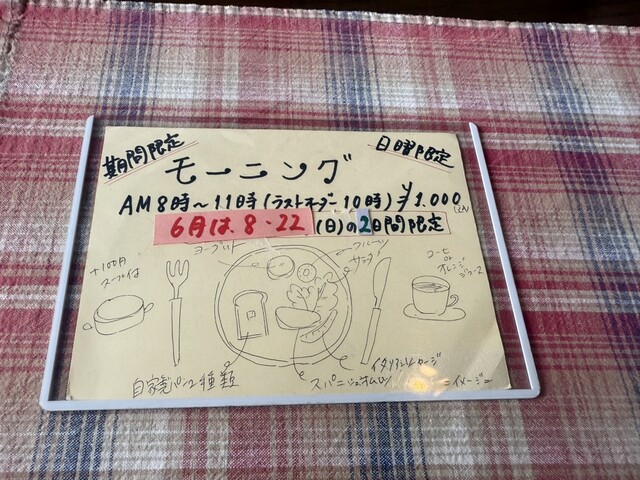 期間限定
日曜限定
モーニング
AM 8時〜11時(ラストオーダー10時) ¥1.000
6月は 8・22(日)の2日間限定
ヨーグルト
フルーツ
サラダ
+100円
スープ付
コーヒー
or
オレンジ
ジュース
自家製パン2種類
スパニッシュオムレツ
イタリアンソーセージ
イメージ